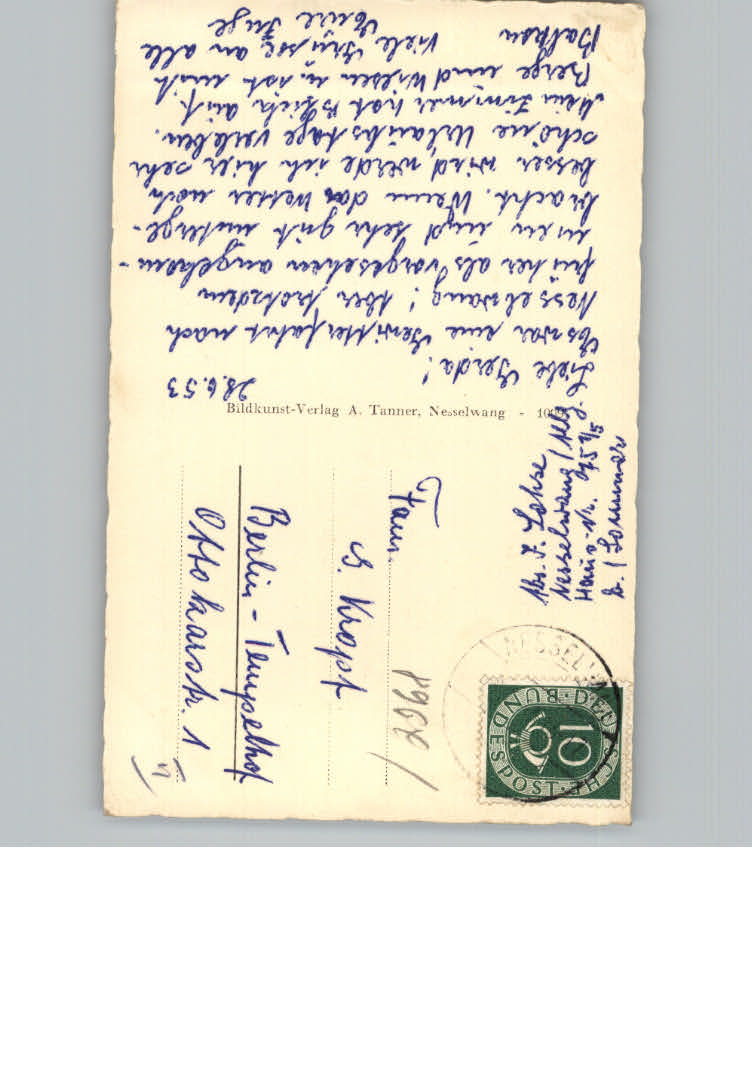 28.6.53
Liebe Gerda!
Es war eine Gewitterfahrt nach
Nesselwang! Aber trotzdem
früher als vorgesehen angekom-
men und sehr gut unterge-
bracht. Wenn das Wetter noch
besser wird, werde ich hier sehr
schöne Urlaubstage verleben.
Mein Zimmer hat Blick auf
Berge und Wiesen u. ist mit
Balkon
Viele Grüsse an alle
Eure Inge
Bildkunst-Verlag A. Tanner, Nesselwang -
Abs. I. Lohse
Nesselwang / Allg.
Haus-Nr.
Fam.
G. Kropf
Berlin-Tempelhof
Ottokarstr. 1
NESSELWANG
DEUTSCHE BUNDESPOST
10